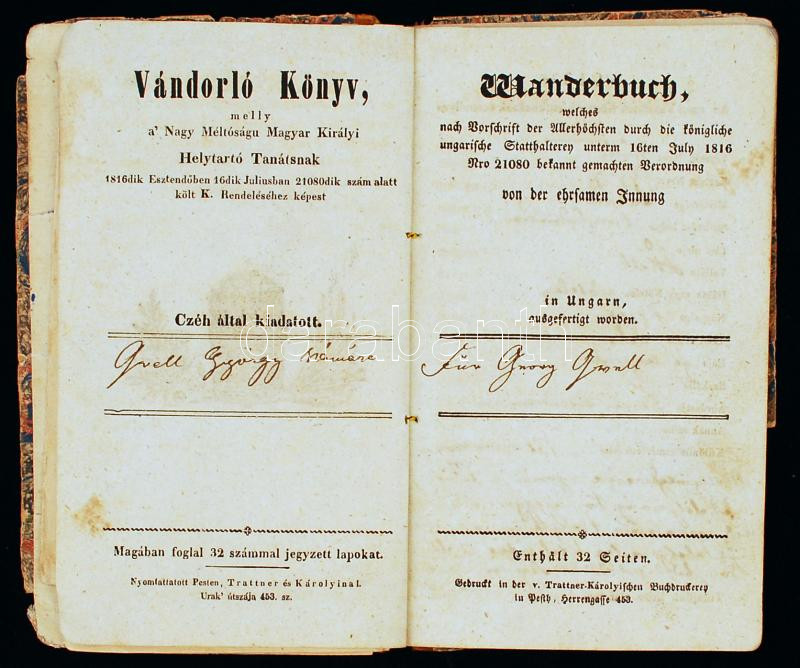 Vándorló Könyv,
melly
a' Nagy Méltóságu Magyar Királyi
Helytartó Tanátsnak
1816dik Esztendőben 16dik Juliusban 21080dik szám alatt
költ K. Rendeléséhez képest
Czéh által kiadatott.
Gvell György számára
Magában foglal 32 számmal jegyzett lapokat.
Nyomtattatott Pesten, Trattner és Károlyinal.
Urak' útszája 453. sz.
Wanderbuch,
welches
nach Vorschrift der Allerhöchsten durch die königliche
ungarische Statthalterey unterm 16ten July 1816
Nro 21080 bekannt gemachten Verordnung
von der ehrsamen Innung
in Ungarn,
ausgefertigt worden.
Für Georg Gvell
Enthält 32 Seiten.
Gedruckt in der v. Trattner-Károlyischen Buchdruckerey
in Pesth, Herrengasse 453.
darabanth